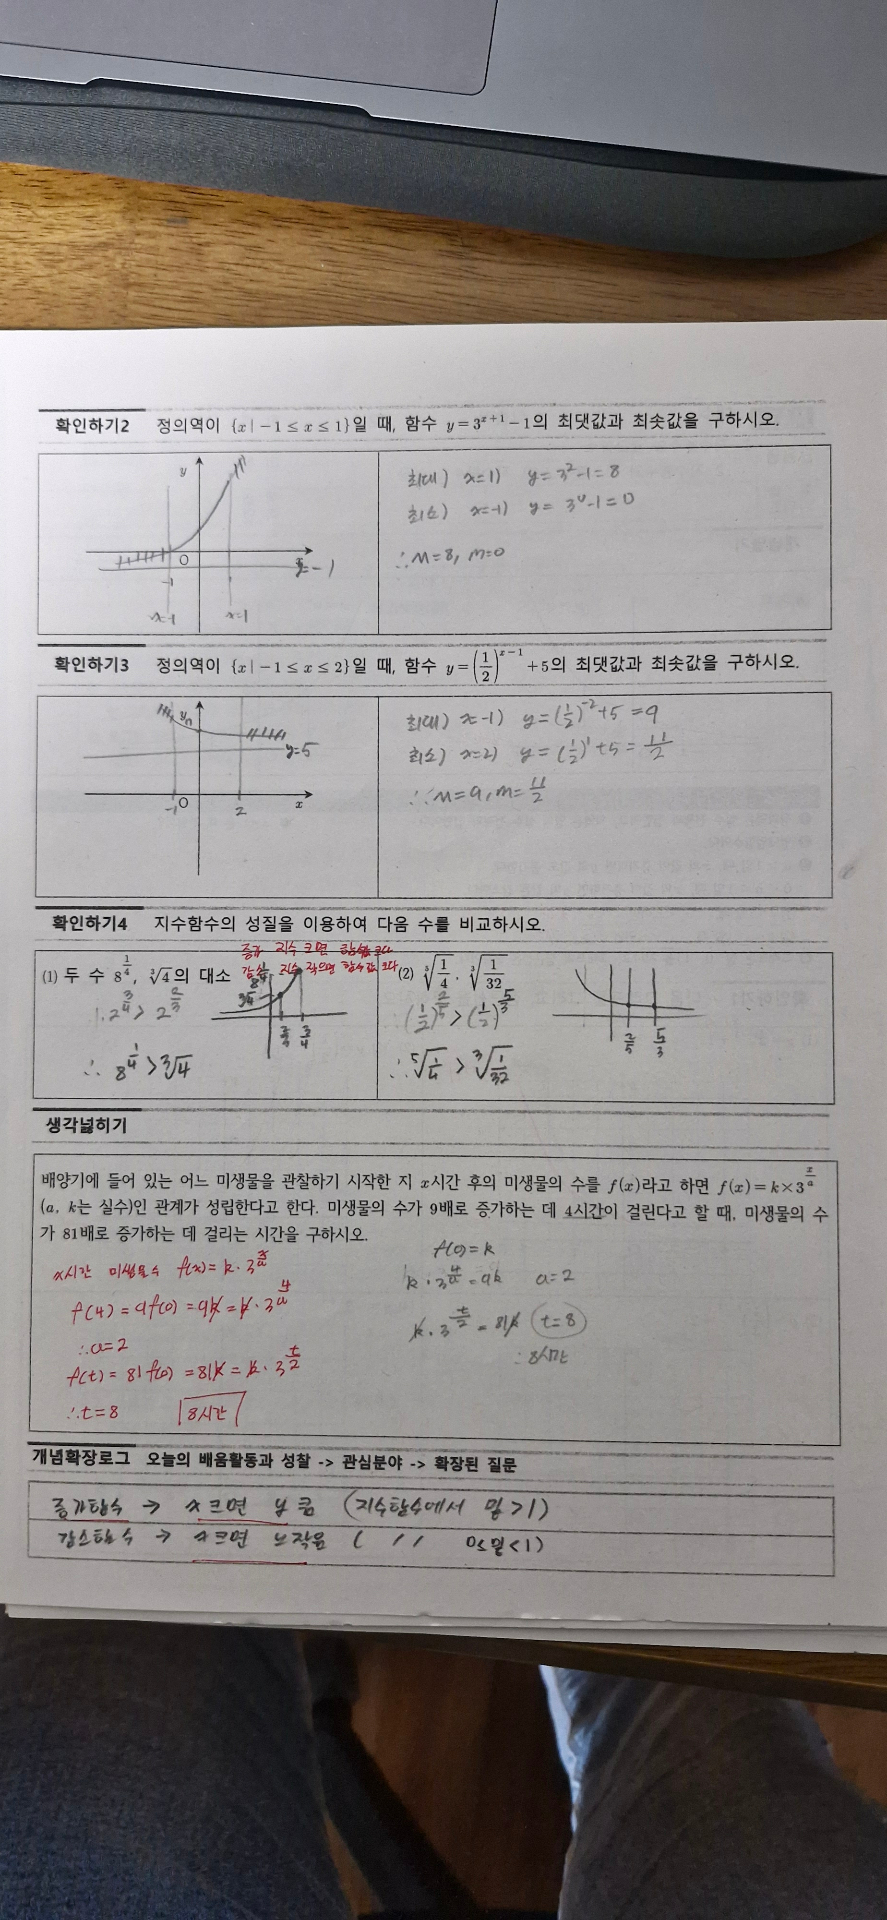 확인하기2 정의역이 {x | -1 ≤ x ≤ 1}일 때, 함수 y = 3^{x+1} - 1의 최댓값과 최솟값을 구하시오.
y
O
-1
y=-1
x=-1
x=1
최대) x=1) y = 3²-1 = 8
최소) x=-1) y = 3⁰-1 = 0
∴ M=8, m=0
확인하기3 정의역이 {x | -1 ≤ x ≤ 2}일 때, 함수 y = (1/2)^{x-1} + 5의 최댓값과 최솟값을 구하시오.
y
y=5
-1 O 2 x
최대) x=-1) y = (1/2)^{-2} + 5 = 9
최소) x=2) y = (1/2)^1 + 5 = 11/2
∴ M=9, m=11/2
확인하기4 지수함수의 성질을 이용하여 다음 수를 비교하시오.
증가 지수 크면 함숫값 크다
감소 지수 작으면 함숫값 크다
(1) 두 수 8^{1/4}, ∛4의 대소
2^{3/4} > 2^{2/3}
∴ 8^{1/4} > ∛4
8^{1/4}
∛4
2/3 3/4
(2) ⁵√(1/4), ³√(1/32)
(1/2)^{2/5} > (1/2)^{5/3}
∴ ⁵√(1/4) > ³√(1/32)
2/5 5/3
생각넓히기
배양기에 들어 있는 어느 미생물을 관찰하기 시작한 지 x시간 후의 미생물의 수를 f(x)라고 하면 f(x) = k×3^{x/a}
(a, k는 실수)인 관계가 성립한다고 한다. 미생물의 수가 9배로 증가하는 데 4시간이 걸린다고 할 때, 미생물의 수
가 81배로 증가하는 데 걸리는 시간을 구하시오.
x시간 미생물수 f(x) = k·3^{x/a}
f(4) = 9f(0) = 9k = k·3^{4/a}
∴ a=2
f(t) = 81f(0) = 81k = k·3^{t/2}
∴ t=8 8시간
f(0) = k
k·3^{4/a} = 9k a=2
k·3^{t/2} = 81k t=8
∴ 8시간
개념확장로그 오늘의 배움활동과 성찰 -> 관심분야 -> 확장된 질문
증가함수 → x크면 y 큼 (지수함수에서 밑>1)
감소함수 → x크면 y작음 ( // 0<밑<1)